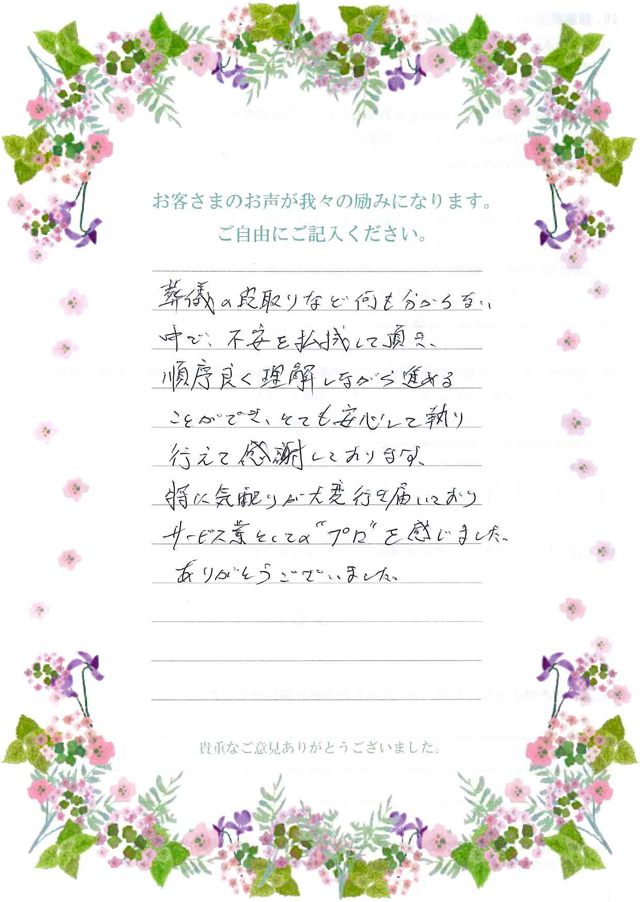 お客さまのお声が我々の励みになります。
ご自由にご記入ください。
葬儀の段取りなど何も分からない
中で、不安を払拭して頂き、
順序良く理解しながら進める
ことができ、とても安心して執り
行えて感謝しております。
特に気配りが大変行き届いており
サービス業としての"プロ"を感じました。
ありがとうございました。
貴重なご意見ありがとうございました。